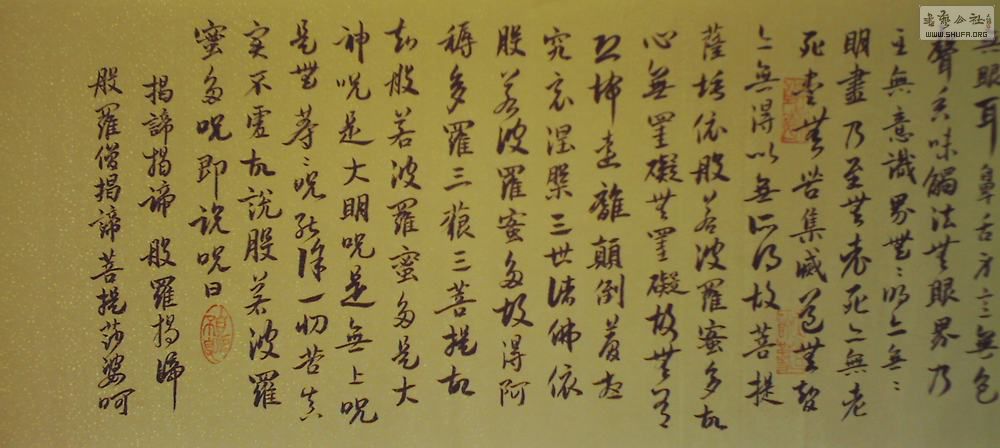 眼耳鼻舌身意無色
聲香味觸法无眼界乃
至無意識界無〻明亦無〻
明盡乃至无老死亦無老
死盡無苦集滅道無智
亦無得以無所得故菩提
薩埵依般若波羅蜜多故
心無罣礙无罣礙故无有
恐怖遠離顛倒夢想
究竟涅槃三世諸佛依
般若波羅蜜多故得阿
耨多羅三藐三菩提故
知般若波羅蜜多是大
神咒是大明咒是無上咒
是無等〻咒能除一切苦真
實不虛故說般若波羅
蜜多咒即說咒曰
揭諦揭諦 般羅揭諦
般羅僧揭諦菩提莎婆呵
书艺公社
WWW.SHUFA.ORG